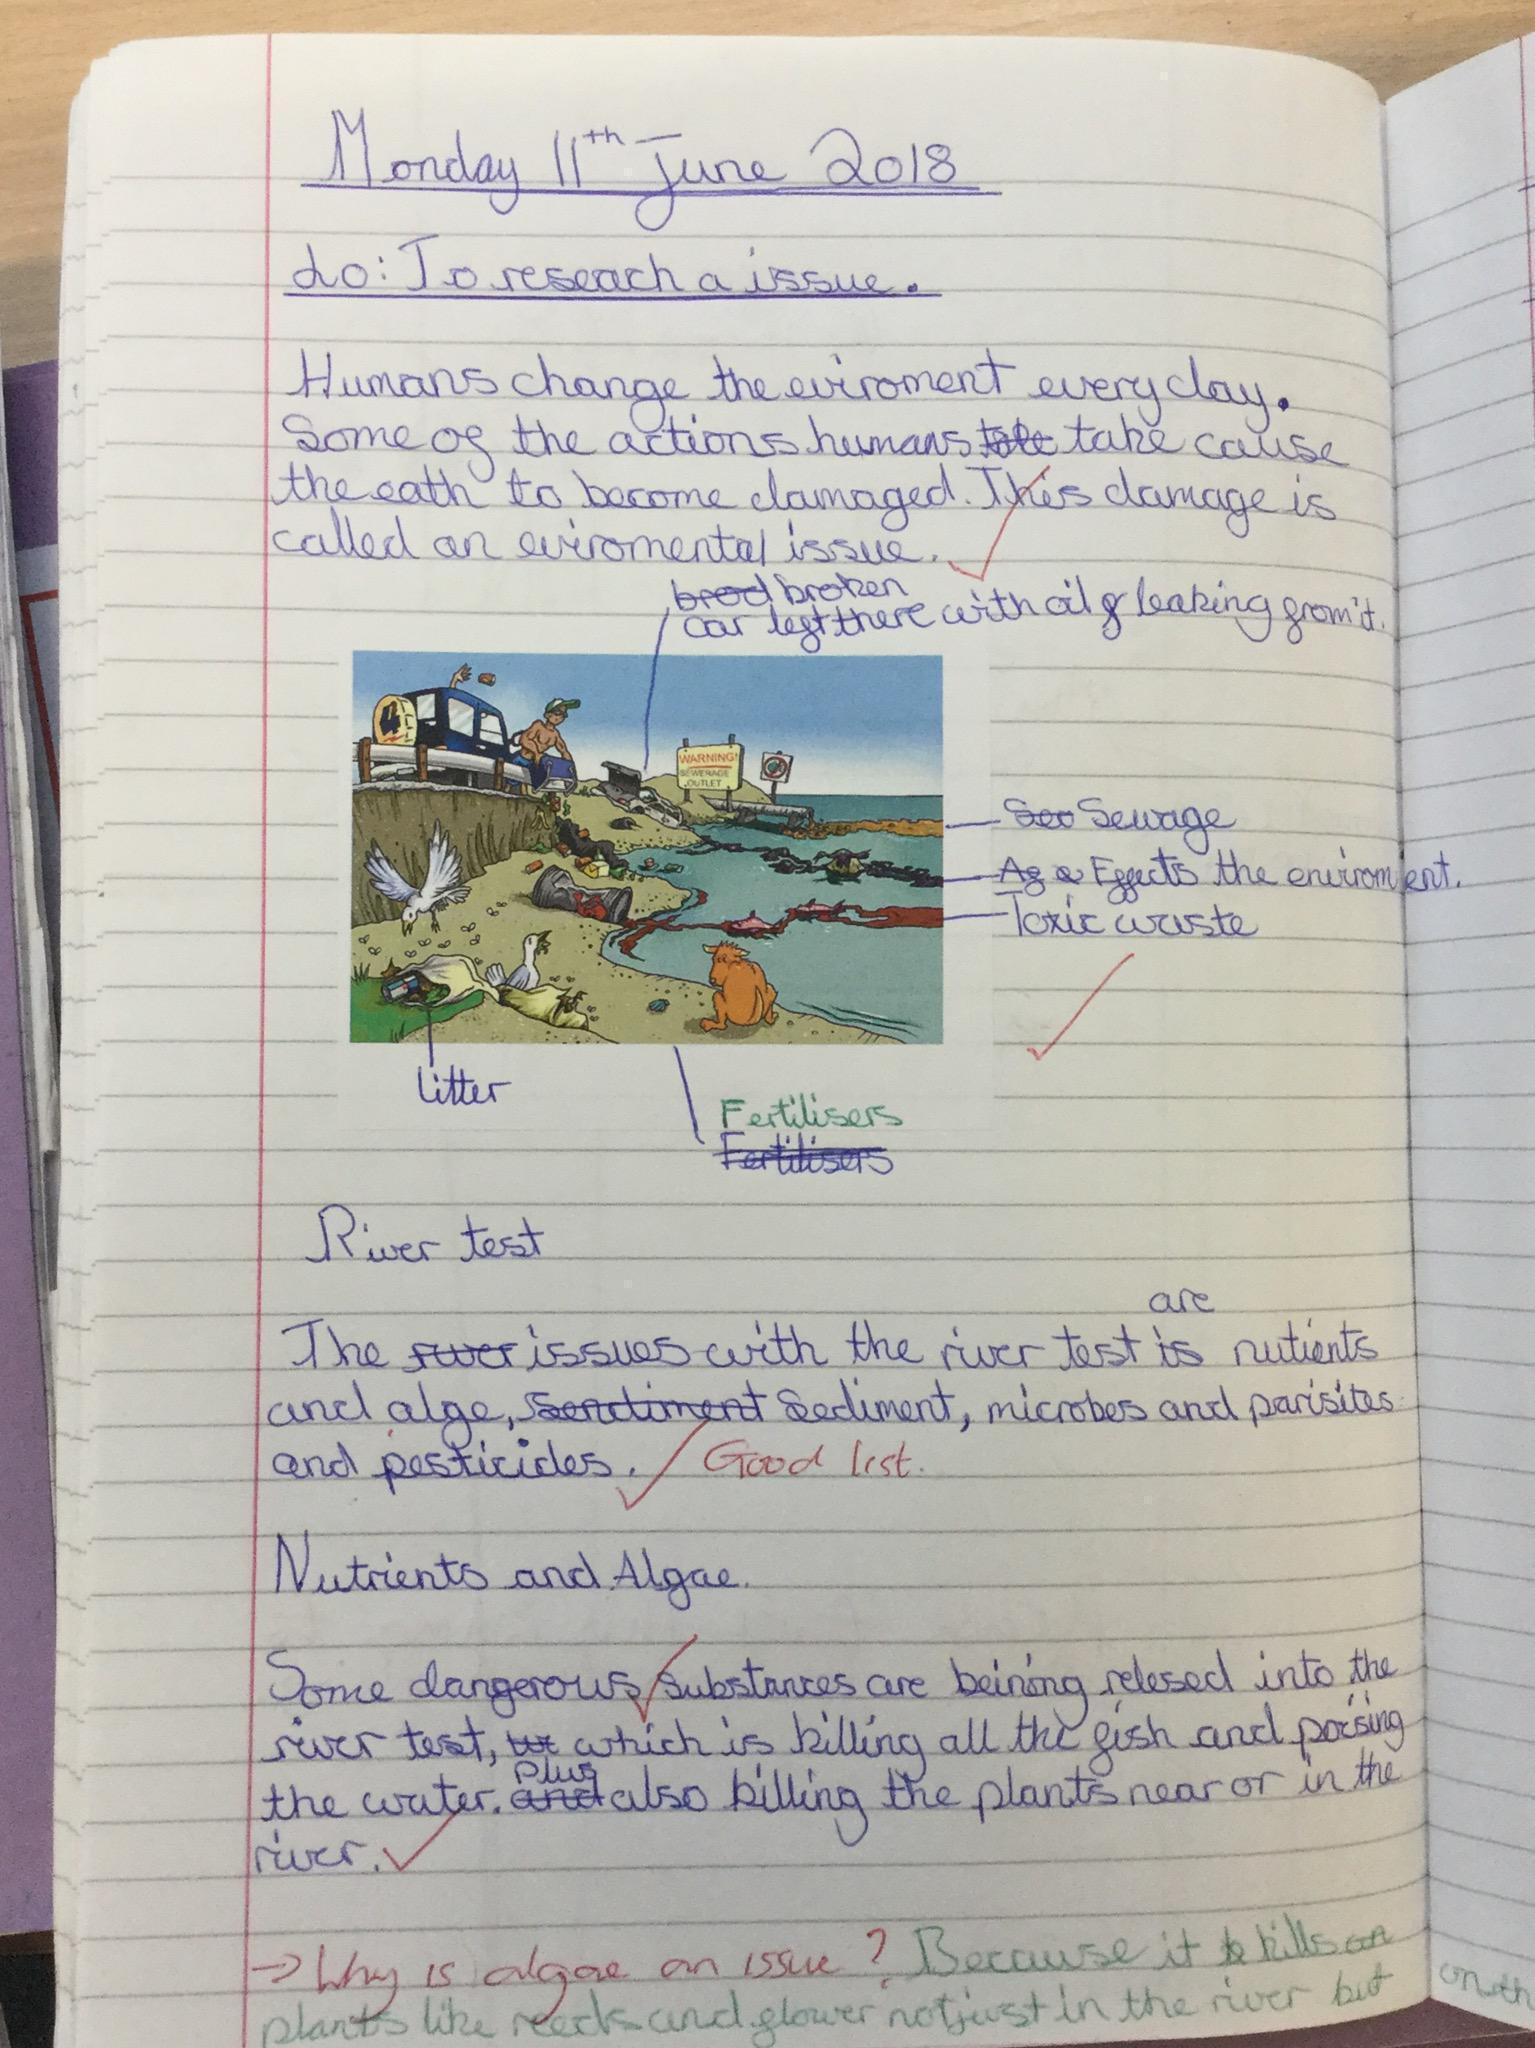 Monday 11th June 2018
Lo: To reseach a issue.
Humans change the eviroment every day.
Some of the actions humans take take cause
the eath to become damaged. This damage is
called an eviromental issue.
brod broken
car left there with oil leaking from it.
WARNING!
SEWERAGE
OUTLET
4
Seo Sewage
Effects the enviroment.
Toxic waste
litter
Fertilisers
Fertilisers
River test
are
The river issues with the river test is nutients
and alge, Sendiment Sediment, microbes and parisites
and pesticides. Good list.
Nutrients and Algae.
Some dangerous substances are beining relesed into the
river test, which is killing all the fish and poising
plus
the water. and also killing the plants near or in the
river.
→ Why is algae an issue? Because it kills on
plants like reeds and flower not just in the river but
on th